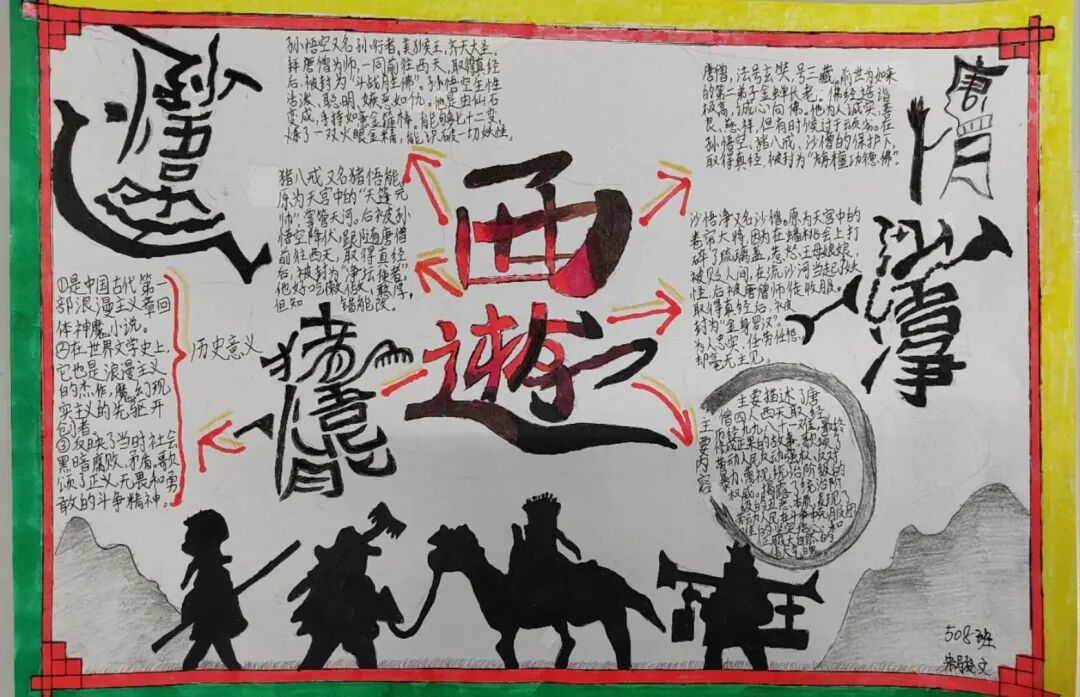 孙悟空
孙悟空又名孙行者,美猴王,齐天大圣。
拜唐僧为师,一同前往西天,取得真经
后,被封为“斗战胜佛”。孙悟空生性
活泼、聪明、嫉恶如仇。他是由仙石
变成,手持如意金箍棒。能够七十二变,
炼了一双火眼金精,能识破一切妖性。
唐僧
唐僧,法号玄奘,号三藏。前世为如来
的第一弟子金蝉长老。佛经造诣
极高,诚心向佛。他为人诚实、善
良、慈祥,但有时候过于顽固。在
孙悟空、猪八戒、沙僧的保护下,
取得真经,被封为“旃檀功德佛”。
猪八戒又名猪悟能,
原为天宫中的“天蓬元
帅”掌管天河。后被孙
悟空降伏,跟随唐僧
前往西天,取得真经
后,被封为“净坛使者”。
他好吃懒做,憨厚,
但知错能改。
猪悟能
西
游
沙悟净又名沙僧。原为天宫中的
卷帘大将,因为在蟠桃会上打
碎了琉璃盏,惹怒王母娘娘,
被贬人间,在流沙河当起妖
怪,后被唐僧师徒收服。
取得真经后,被
封为“金身罗汉”。
为人忠实,任劳任怨,
却毫无主见。
沙悟净
历史意义
①是中国古代第一
部浪漫主义章回
体神魔小说。
②在世界文学史上,
它也是浪漫主义
的杰作,魔幻现
实主义的先驱开
创者。
③反映了当时社会
黑暗腐败、矛盾。歌
颂了正义无畏和勇
敢的斗争精神。
主要内容
主要描述了唐
僧四人西天取经
历经九九八十一难,最终
的故事。歌颂了
劳动人民反动
暴力,蔑视统治阶级的
权威。揭露了统治阶
级的
508班